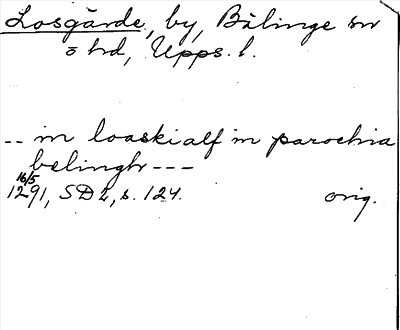 Losgärde, by, Bälinge sn
o hd, Upps. l.
-- in loaskialf in parochia
belingh ---
16/5
1291, SD 2, s. 124. orig.